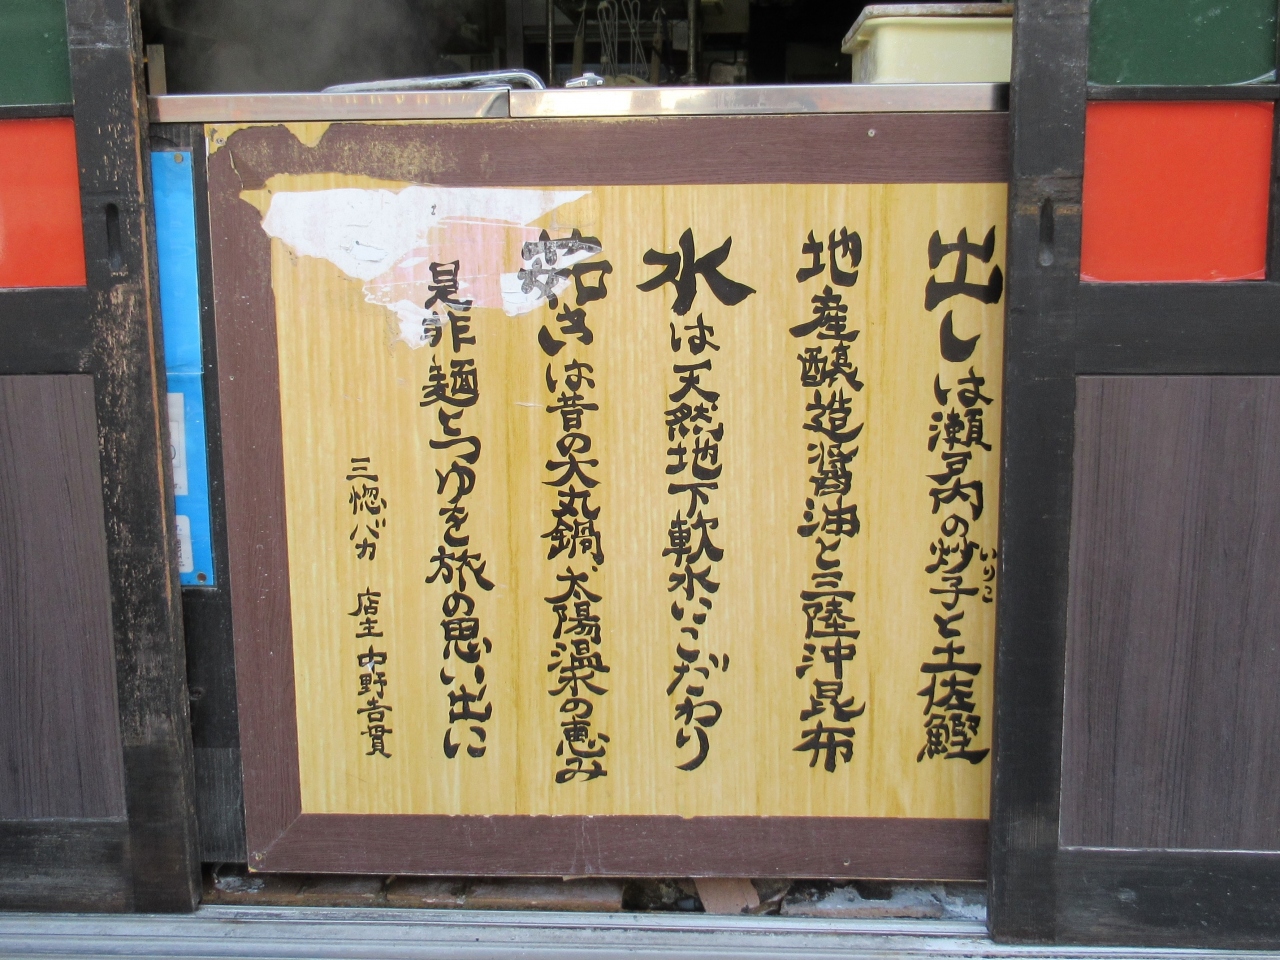 出しは瀬戸内の炒子と土佐鰹
いりこ
地産醸造醤油と三陸沖昆布
水は天然地下軟水にこだわり
茹きは昔の大丸鍋、太陽温泉の恵み
是非麺とつゆを旅の思い出に
三惚バカ 店主 中野吉貫